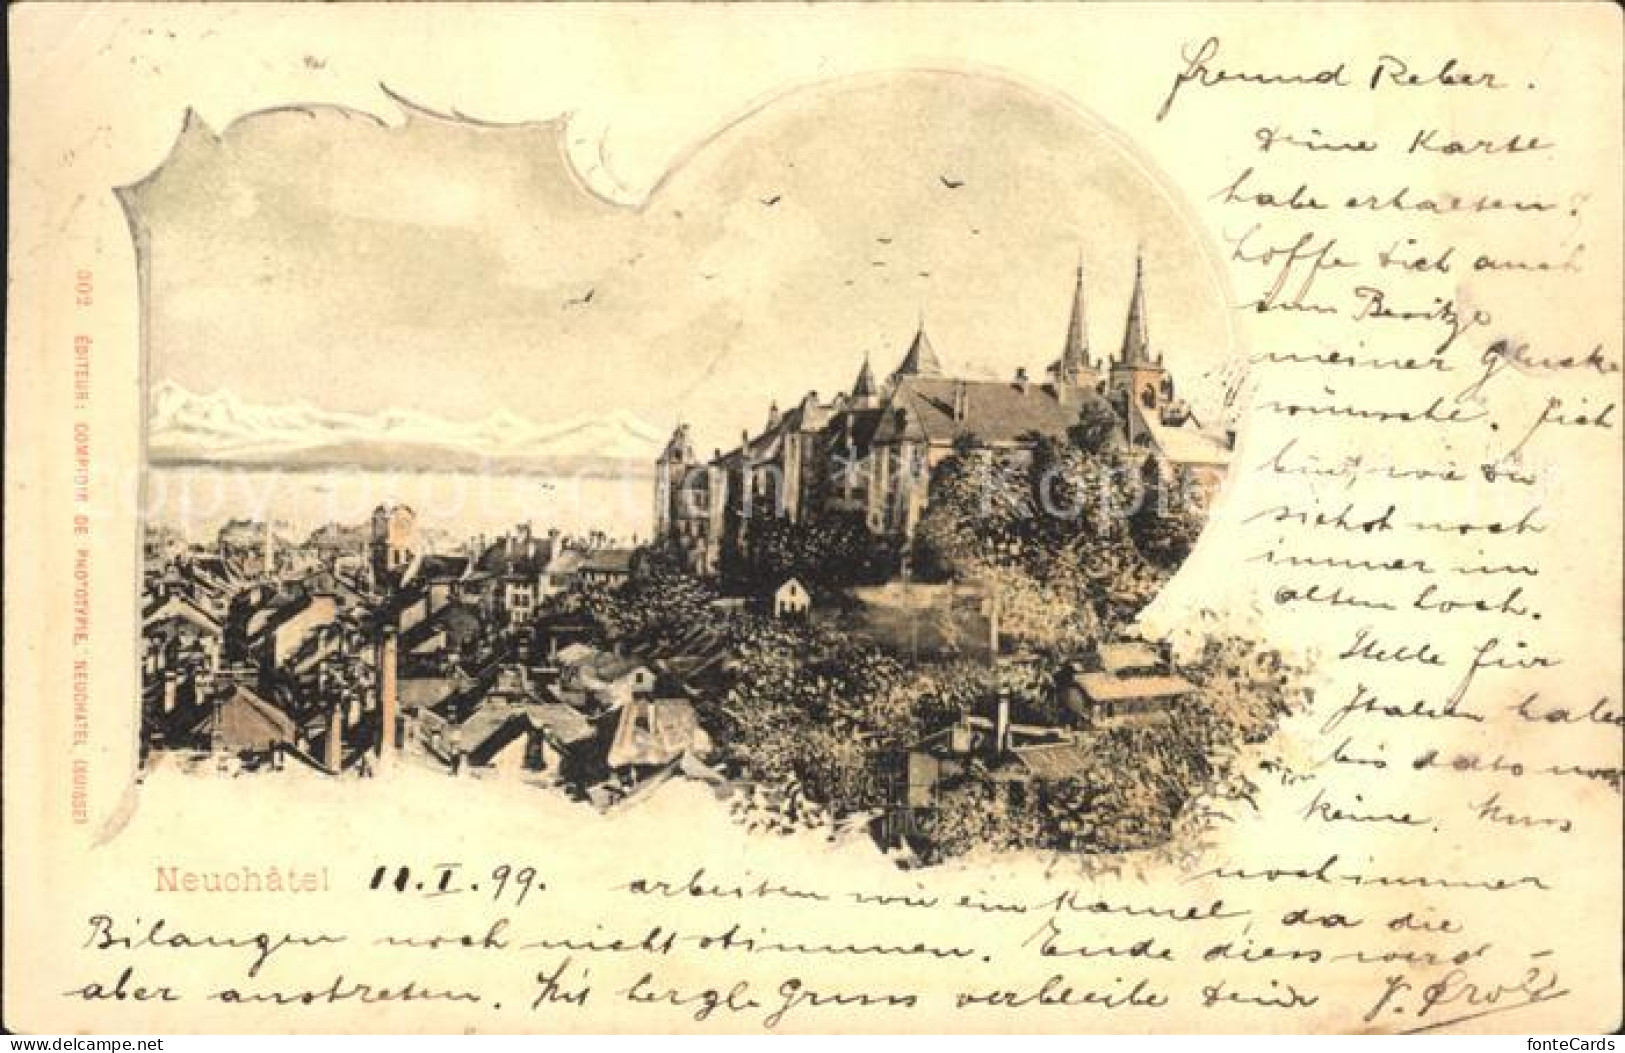 freund Reber.
Deine Karte
habe erhalten,
hoffe dich auch
im Besitze
meiner Glück-
wünsche. Ich
bin, wie du
siehst noch
immer im
alten Loch.
Stelle für
Italien habe
bis dato noch
keine. Muss
noch immer
arbeiten wie ein Kamel, da die
Bilanzen noch nicht stimmen. Ende dies werd
aber austreten. Mit herzl. Gruss verbleibe Dein
Neuchâtel 11.I.99.
302 ÉDITEUR: COMPTOIR DE PHOTOTYPIE, NEUCHATEL (SUISSE)
copy protection ** Kopierschutz
www.fonte.cards
fonteCards